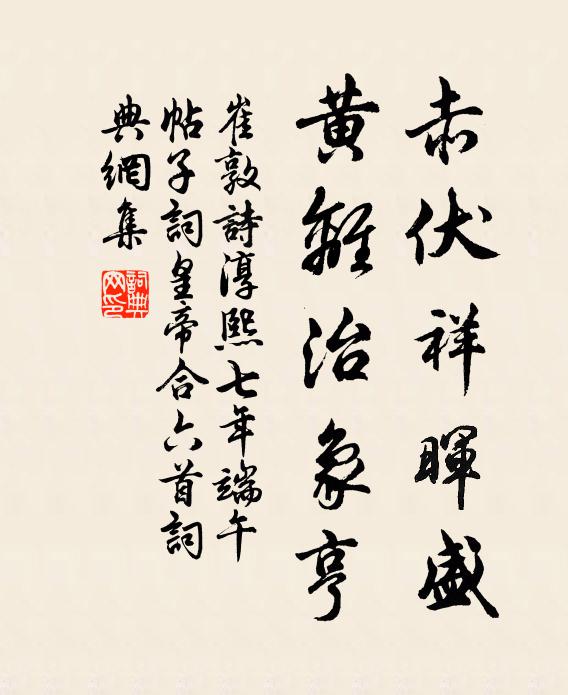 赤伏祥暉盛
黃離治象亨
崔敦詩淳熙七年端午
帖子詞皇帝合六首詞
典網集
詞典網印